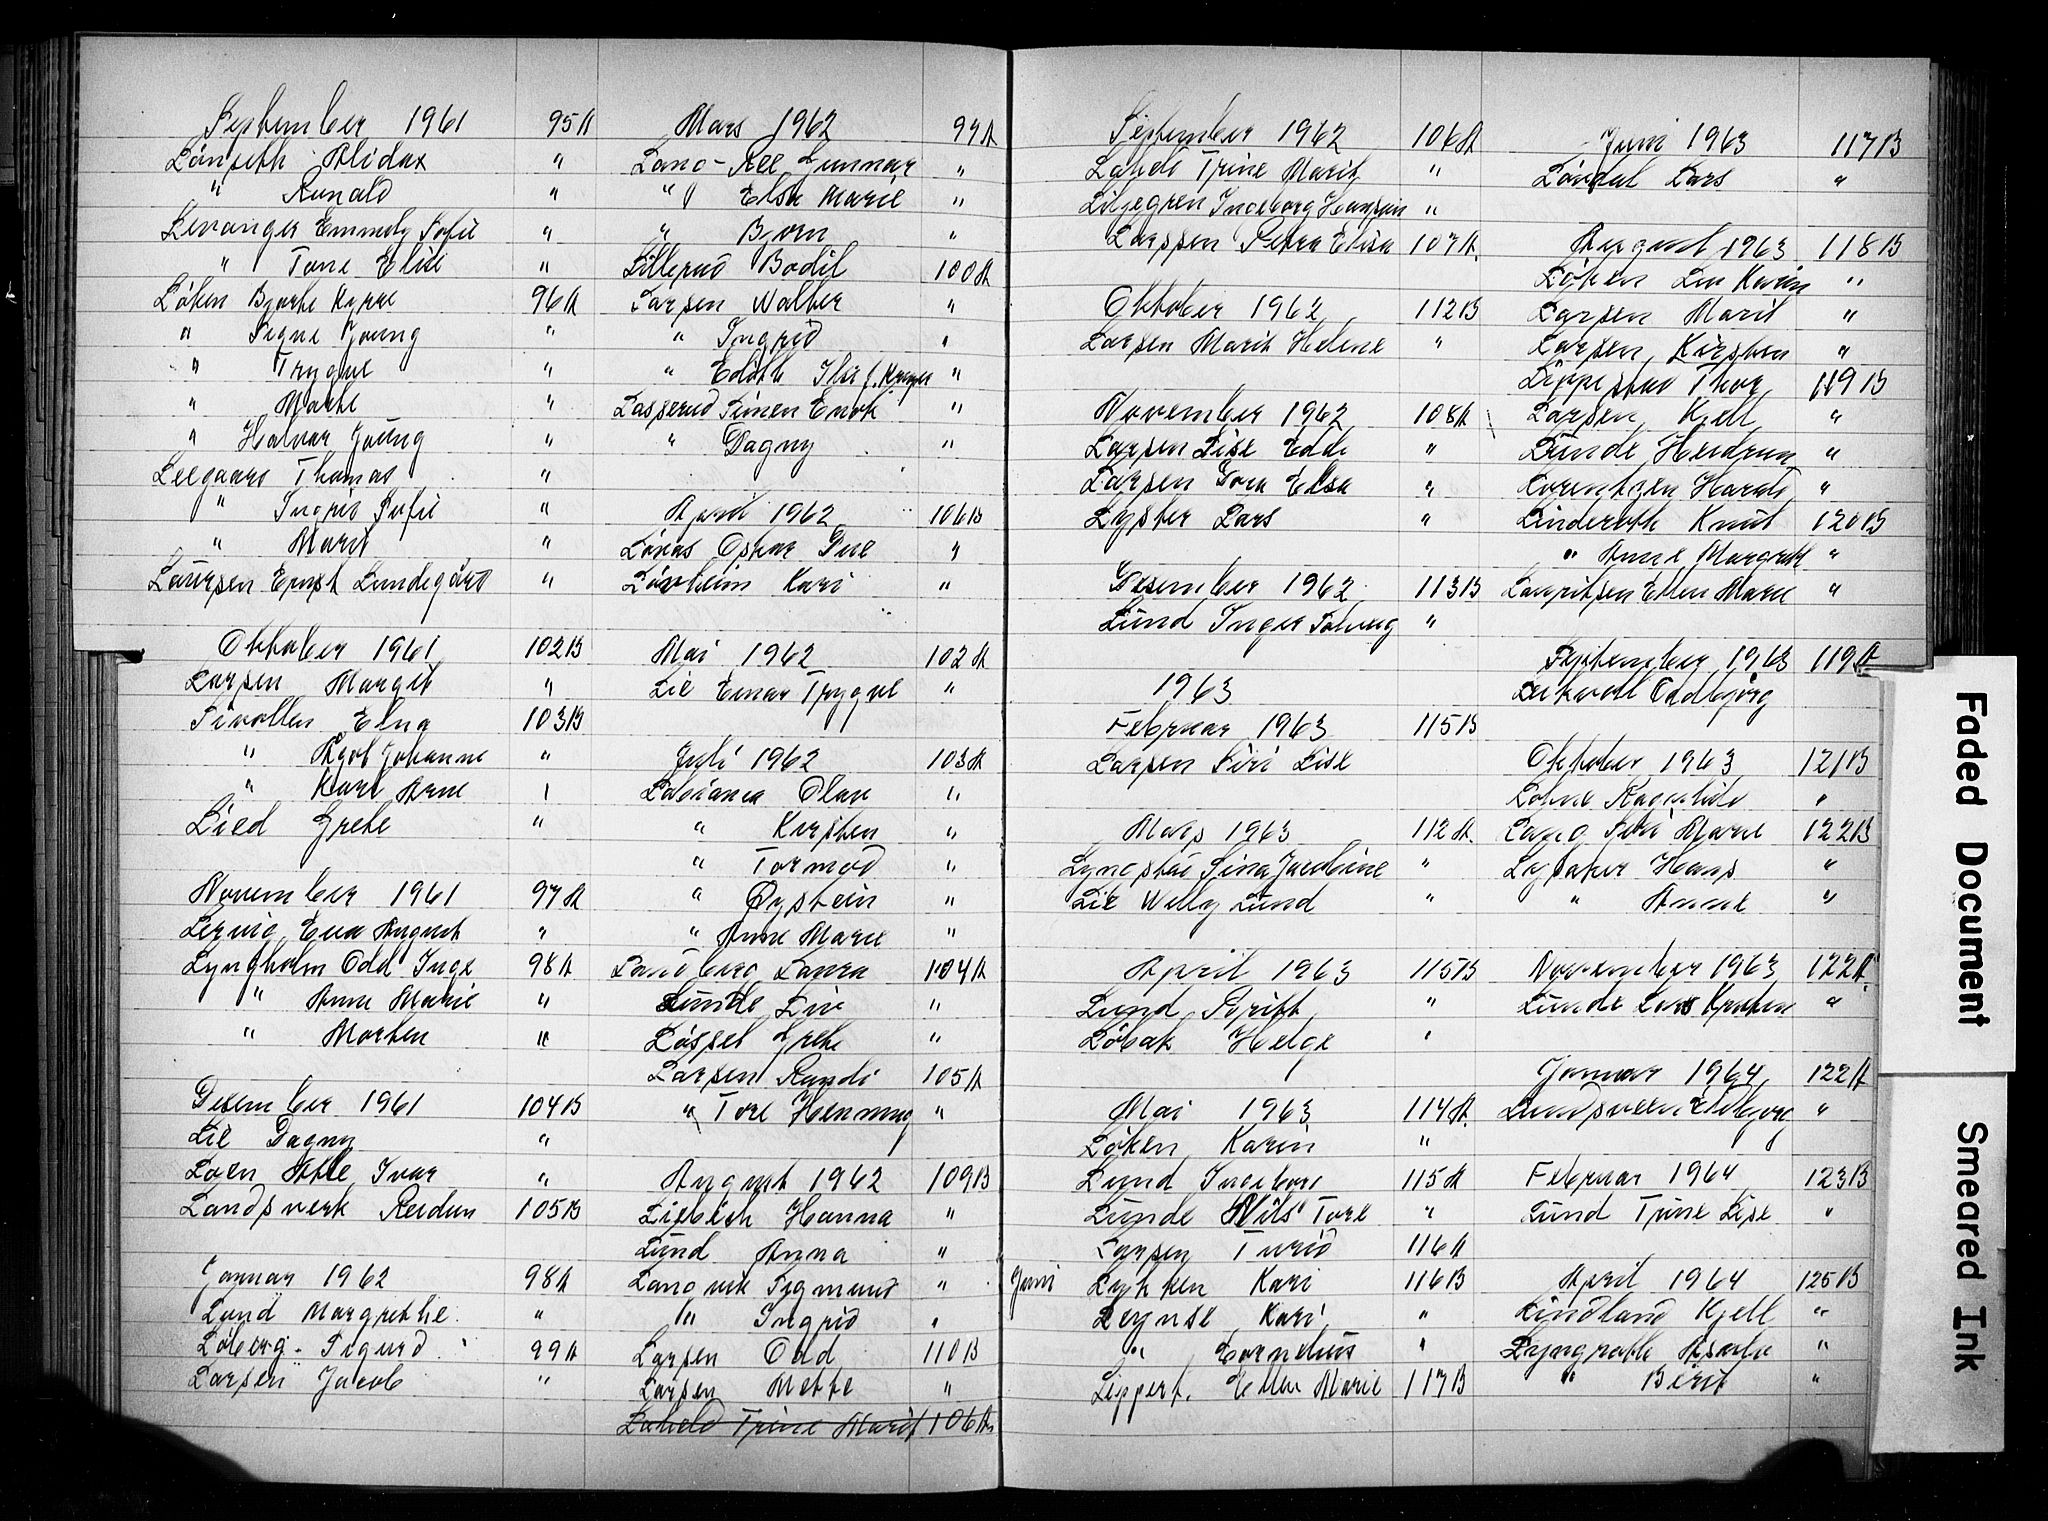 September 1961 95A
Lönseth Alidax "
" Ronald "
Levanger Emmely Sofie "
" Tone Elise "
Løken Bjarke Kyrre 96A
" Signe Joung "
" Trygve "
" Marte "
" Halvar Joung "
Leegaard Thomas "
" Ingrid Sofie "
" Marit "
Laursen Ernst Lundegård "
Oktober 1961 102B
Larsen Margit "
Sivollen Elna 103B
" Agot Johanne "
" Karl Arne "
Lied Grete "
November 1961 97A
Lervig Eva August "
Lyngholm Odd Inge 98A
" Anne Marie "
" Morten "
Desember 1961 104B
Lie Dagny "
Loen Atle Ivar "
Landsverk Reidun 105B
Januar 1962 98A
Lund Margrethe "
Løberg Sigurd "
Larsen Jacob 99A "
Mars 1962 99A
Lang-Ree Gunnar "
" Elsa Marie "
" Bjørn "
Lillerud Bodil 100A
Larsen Walter "
" Ingrid "
" Edith Ilse f. "
Lasserud Simen Enok "
" Dagny "
April 1962 106B
Lønås Oskar Due "
Løvheim Kari "
Mai 1962 102A
Lie Einar Trygve "
Juli 1962 103A
Labianca Olav "
" Kirsten "
" Tormod "
" Øystein "
" Anne Marie "
Landberg Laura 104A
Lunde Liv "
Løsset Grete "
Larsen Randi 105A
" Tore Henning "
August 1962 109B
Liebich Hanna "
Lund Anna "
Langvik Sigmund "
" Ingrid "
Larsen Odd 110B
Larsen Mette "
Laheld Trine Marit 106A
September 1962 106A
Laheld Trine Marit "
Liljegren Ingeborg Hanssen "
Larssen Petra Elisa 107A
Oktober 1962 112B
Larsen Marit Helene "
November 1962 108A
Larsen Lise Edde "
Larsen Tora Elsa "
Lyster Lars "
Desember 1962 113B
Lund Inger Solveig "
1963
Februar 1963 115B
Larsen Siri Lise
Mars 1963 112A
Lyngstad Sina Jacobine "
Lie Willy Lund "
April 1963 115B
Lund Berit "
Løbak Helge "
Mai 1963 114A
Løken Karin "
Lund Ingeborg 115A
Lunde Nils Tore "
Larsen Turid 116A
Juni Lykken Kari 116B
Leynse Kari "
" Cornelius "
Lippert Ellen Marie 117B
Juni 1963 117B
Løndal Lars "
August 1963 118B
Løken Liv Karin "
Larsen Marit "
Larsen Kirsten "
Lippestad Thor 119B
Larsen Kjell "
Lunde Heidrun "
Lorentzen Harald "
Linderoth Knut 120B
" Anne Margrete "
Lauritsen Ellen Marie "
September 1963 119A
Leikvoll Oddbjørg
Oktober 1963 121B
Lohne Ragnhild "
Lang Siri Marie 122B
Lysaker Hans "
" Anne "
November 1963 122A
Lunde Lars Kristen "
Januar 1964 122A
Lundsveen Elbjørg "
Februar 1964 123B
Lund Trine Lise "
April 1964 125B
Lindland Kjell "
Lyngroth Asche "
" Berit "
Faded Document
Smeared Ink